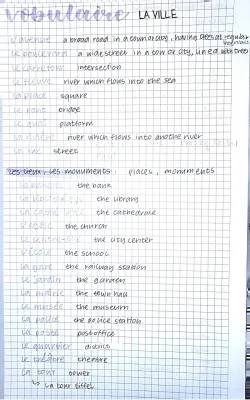 vobulaire LA VILLE
l'avenue a broad road in a town or city, having trees at regular intervals
le boulevard a wide street in a tow or city, lined with trees
le carrefour intersection
le fleuve river which flows into the sea
la place square
le pont bridge
le quai platform
la rivière river which flows into another river
la rue street
Les lieux, les monuments: places, monuments
la banque the bank
the library
la cathédrale the cathedrale
l'église the church
le centre-ville the city center
l'école the school
la gare the railway station
le jardin the garden
la mairie the town hall
le musée the museum
la police the police station
la poste post office
le quartier district
le théâtre theatre
la tour tower
↳ La tour Eiffel